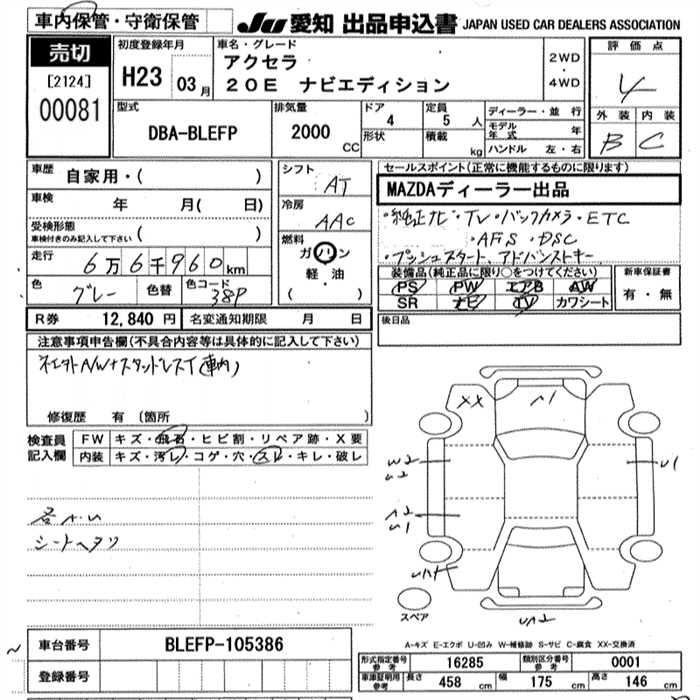 車内保管・守衛保管
JU 愛知 出品申込書 JAPAN USED CAR DEALERS ASSOCIATION
売切
[2124]
00081
初度登録年月
H23 03月
車名・グレード
アクセラ
20E ナビエディション
2WD
・
4WD
評価点
4
外装 内装
B C
型式
DBA-BLEFP
排気量
2000 CC
ドア
4
形状
定員
5 人
積載
kg
ディーラー・並行
モデル年式 年
ハンドル 左・右
車歴 自家用・( )
車検 年 月( 日)
受検形態
車検付きのみ記入して下さい ( )
走行 6万6千960km
色 グレー 色替 色コード 38P
シフト AT
冷房 AAC
燃料
ガソリン
軽・油
( ・ )
セールスポイント(正常に機能するものに限ります)
MAZDAディーラー出品
・純正ナビ・TV・バックカメラ・ETC
・AFS・DSC
・プッシュスタート、アドバンストキー
装備品(純正品に限り○をつけてください)
PS PW エアB AW
SR ナビ TV カワシート
新車保証書
有・無
R券 12,840 円 名変通知期限 月 日
後日品
注意事項申告欄(不具合内容等は具体的に記入して下さい)
修復歴 有 (箇所 )
検査員記入欄
FW キズ・飛石・ヒビ割・リペア跡・X要
内装 キズ・汚レ・コゲ・穴・スレ・キレ・破レ
シートヘタリ
XX
A1
W2
U2
A2
U1
U1
スペア
A-キズ E-エクボ U-凹み W-補修跡 S-サビ C-腐食 XX-交換済
車台番号 BLEFP-105386
登録番号
形式指定番号参考 16285 類別区分番号参考 0001
車庫証明用参考 長さ 458 cm 幅 175 cm 高さ 146 cm